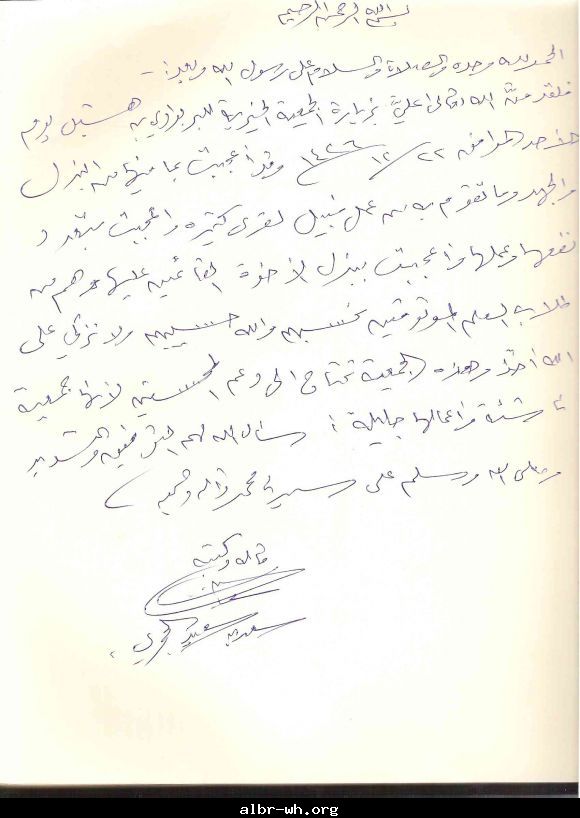 بسم الله الرحمن الرحيم
الحمد لله وحده والصلاة والسلام على رسول الله وبعد :-
فلقد منّ الله تعالى عليّ بزيارة الجمعية الخيرية للبر بوادي بن هشبل يوم
الأحد الموافق ٢٢ / ١٢ / ١٤٢٦ وقد أعجبت بما فيها من البذل
والجهد وما تقوم به من عمل نبيل لقرى كثيرة وأعجبت بتعدد
نفعها وعملها وأعجبت ببذل الأخوة القائمين عليها وهم من
طلاب العلم الموثوقين نحسبهم والله حسيبهم ولا نزكي على
الله أحداً وهذه الجمعية تحتاج إلى دعم المحسنين لأنها جمعية
ناشئة وأعمالها جليلة نسأل الله لهم التوفيق والتسديد
وصلى الله وسلم على سيدنا محمد وآله وصحبه
قاله وكتبه
سعد بن سعيد الحجري
albr-wh.org